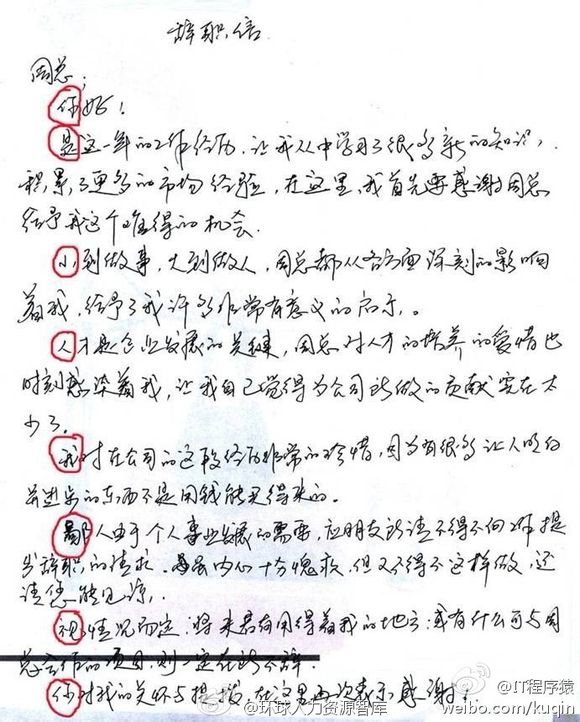 辞职信
周总:
你好!
是这一年的工作经历,让我从中学习了很多新的知识,
积累了更多的市场经验,在这里,我首先要感谢周总
给予我这个难得的机会.
小到做事,大到做人,周总都从各方面深刻的影响
着我,给予了我许多非常有意义的启示。
人才是企业发展的关键,周总对人才的培养的爱惜也
时刻感染着我,让我自己觉得为公司所做的贡献实在太
少了.
我对在公司的这段经历非常的珍惜,因为有很多让人明白
并进步的东西不是用钱能买得来的.
鄙人由于个人事业发展的需要,应朋友所请不得不向你提
出辞职的请求.虽然内心十分愧疚,但又不得不这样做,还
请您能见谅.
视情况而定,将来若有用得着我的地方,或有什么可与周
总合作的项目,则一定在所不辞.
你对我的关怀与提拔,在这里再次表示感谢!
@IT程序猿
@环球人力资源智库
weibo.com/kuqin